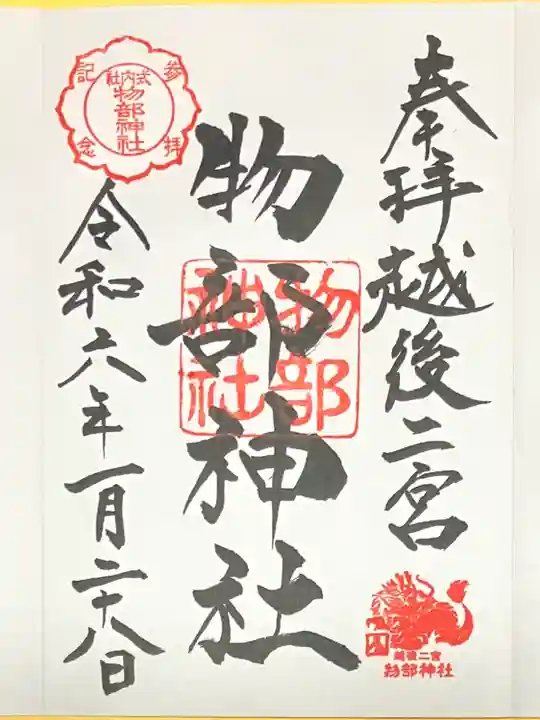 奉拝越後二宮
物部神社
物部
神社
令和六年一月二十八日
参拝
記念
式内社
物部神社
越後二宮
物部神社